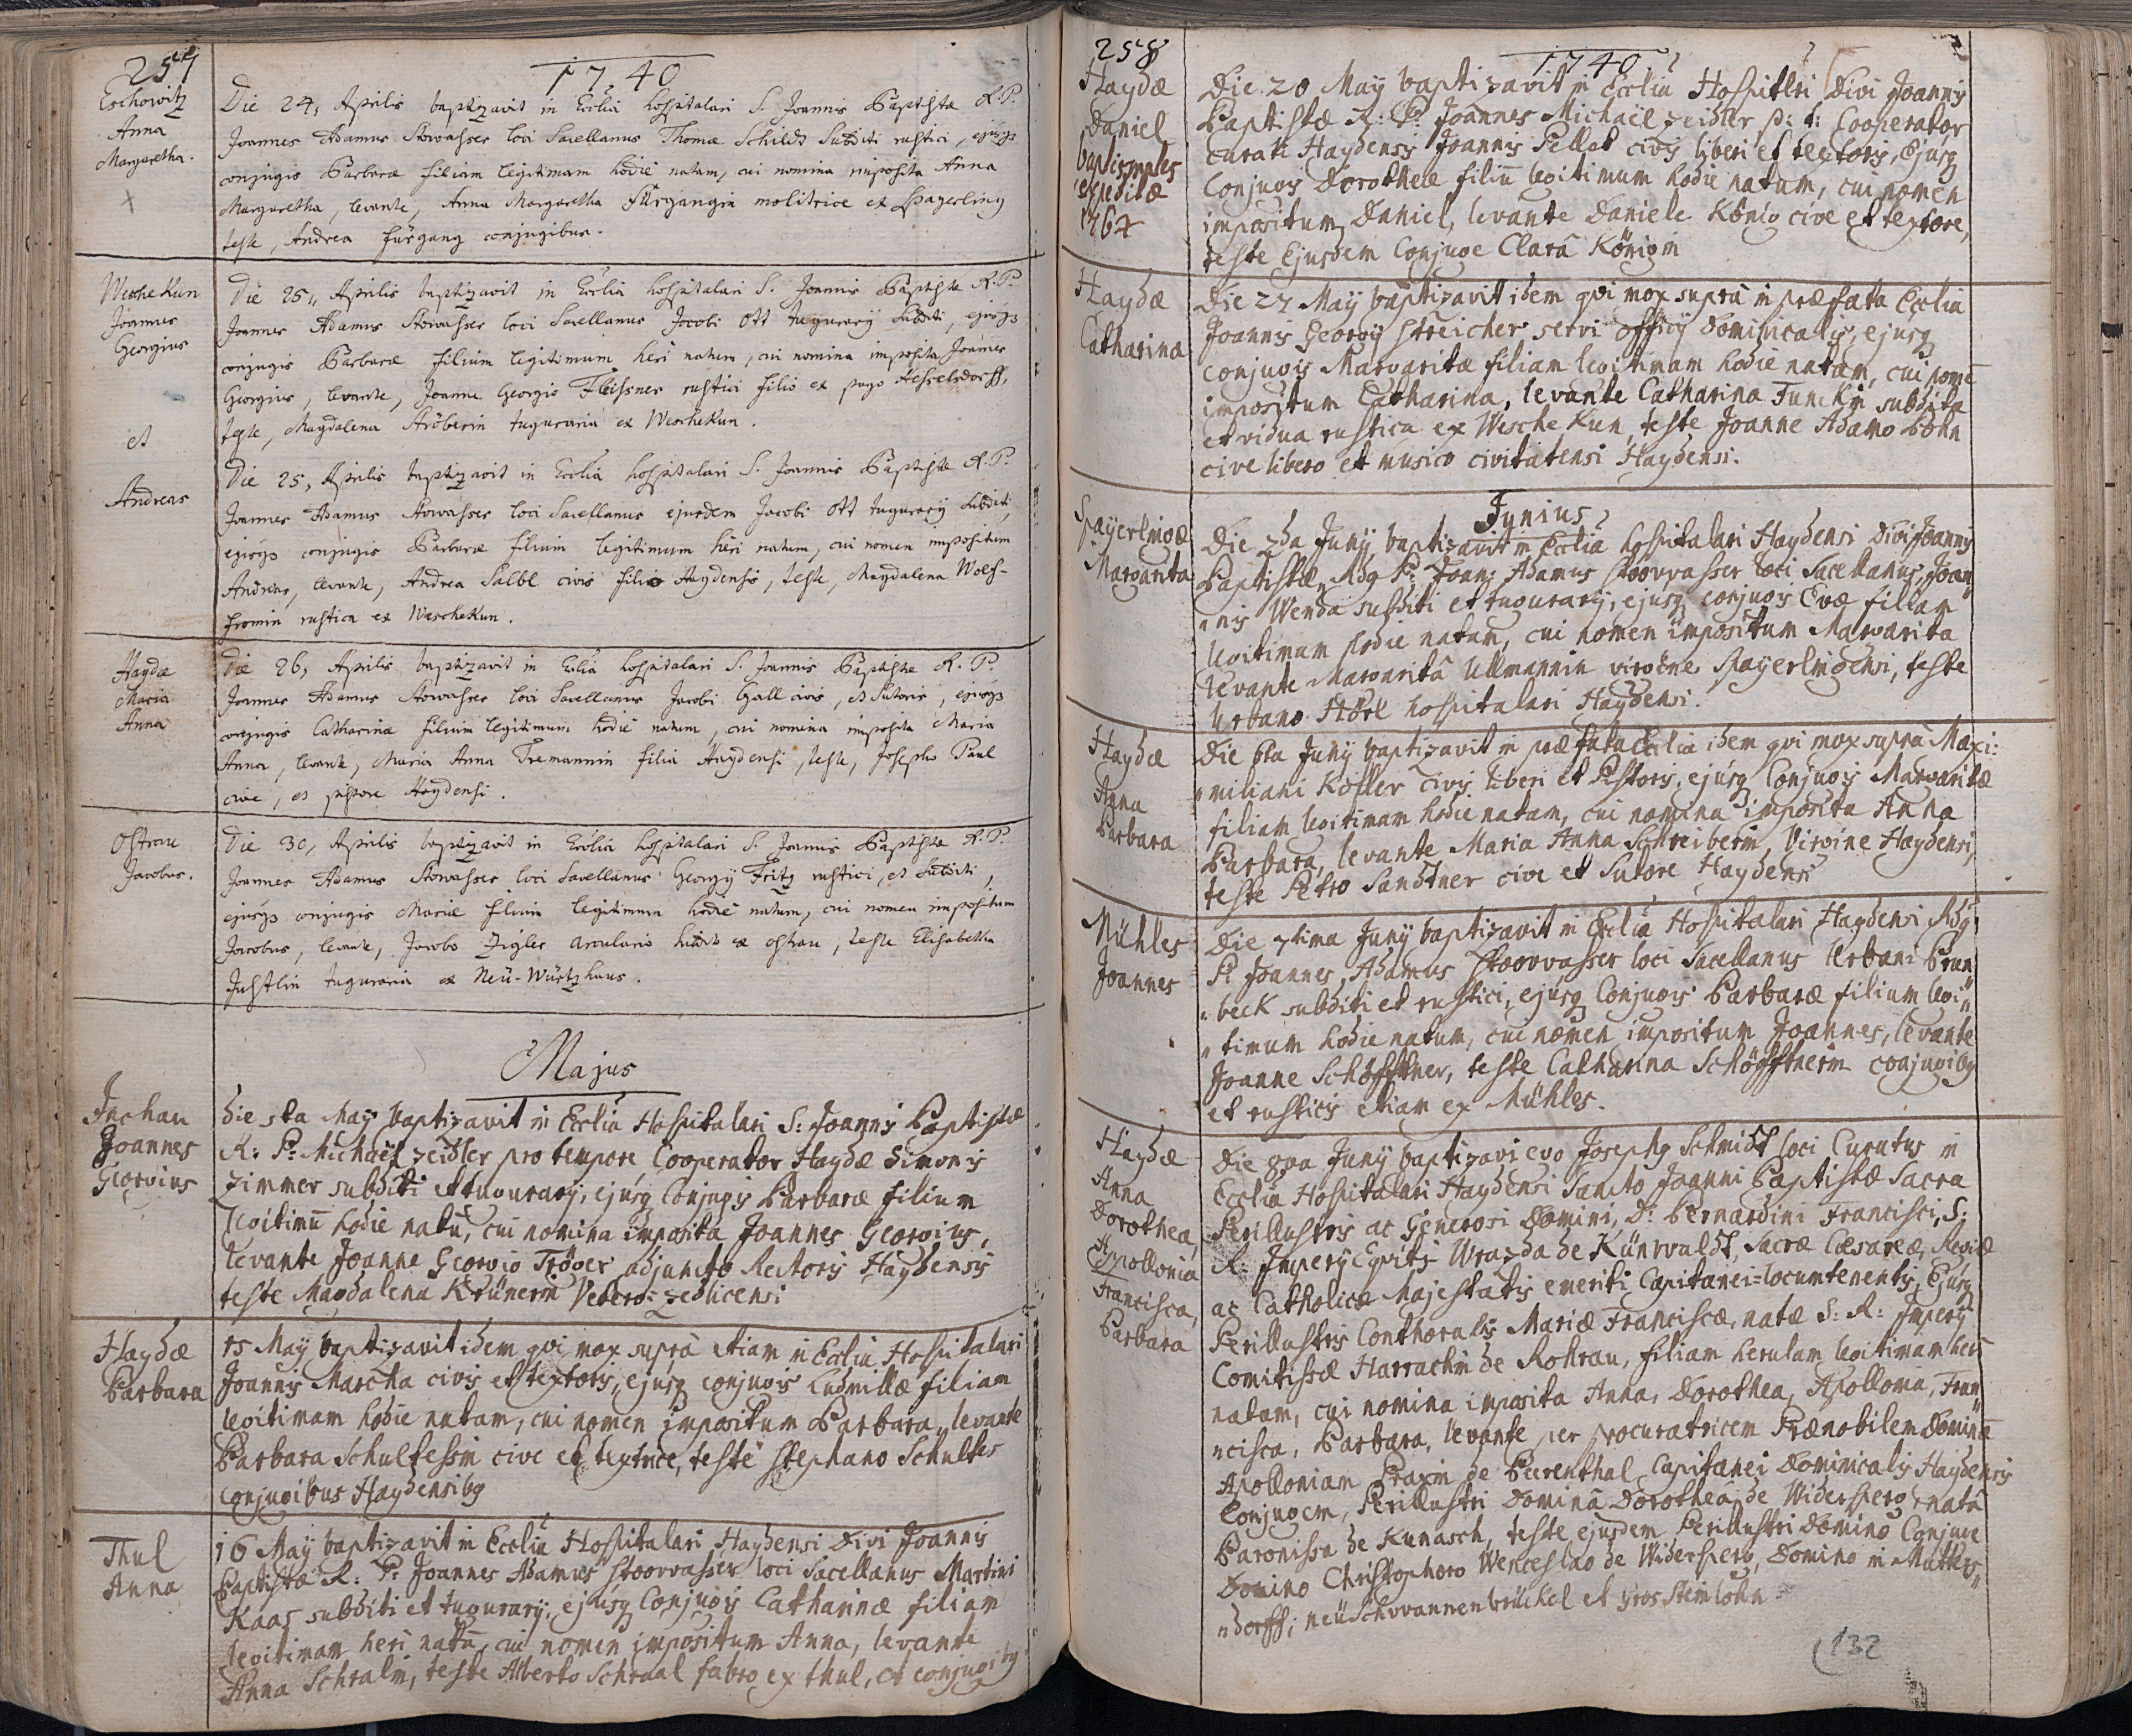 257
1740
Eschowitz
Anna
Margaretha.
Die 24, Aprilis baptizavit in Ecclia hospitalari S. Joannis Baptistæ R. P.
Joannes Adamus Storvasser loci Sacellanus Thomæ Schildt Subditi rustici, ejúsqз
conjugis Barbaræ filiam legitimam hodiè natam, cui nomina imposita Anna
Margaretha, levante, Anna Margaretha Fürgangin molitrice ex Spagerling
teste, Andrea fürgang conjugibus.
Wesche Kun
Joannes
Georgius
Die 25,, Aprilis baptizavit in Ecclia hospitalari S. Joannis Baptistæ R. P.
Joannes Adamus Storvasser loci Sacellanus Jacobi Ott tugurarÿ Subditi, ejúsqз
conjugis Barbaræ filium legitimum heri natum, cui nomina imposita Joannes
Georgius, levante, Joanne Georgio Fleissner rustici filio ex pago Hesselsdorff,
teste, Magdalena Ströberin tuguraria ex WescheKun.
et
Andreas
Die 25, Aprilis baptizavit in Ecclia hospitalari S. Joannis Baptistæ R. P.
Joannes Adamus Storvasser loci Sacellanus ejusdem Jacobi Ott tugurarÿ Subditi,
ejúsqз conjugis Barbaræ filium legitimum heri natum, cui nomen impositum
Andreas, levante, Andrea Salbl civis filio Haydensis, teste, Magdalena Wolf-
fromin rustica ex WescheKun.
Haydæ
Maria
Anna
Die 26, Aprilis baptizavit in Ecclia hospitalari S. Joannis Baptistæ R. P.
Joannes Adamus Storvasser loci Sacellanus Jacobi Gall civis, et Sutoris, ejúsqз
conjugis Catharinæ filium legitimum hodiè natum, cui nomina imposita Maria
Anna, levante, Maria Anna Tremannin filia Haydensi, teste, Josepho Paul
cive, et pistore Haydensi.
Ostrau
Jacobus.
Die 30, Aprilis baptizavit in Ecclia hospitalari S. Joannis Baptistæ R. P.
Joannes Adamus Storvasser loci Sacellanus Georgÿ Fritz rustici, et Subditi,
ejúsqз conjugis Mariæ filium legitimum hodiè natum, cui nomen impositum
Jacobus, levante, Jacobo Zigler arculario ex ostrau, teste Elisabetha
Justlin tuguraria ex Neü-Würtzhaus.
Majus
Inchau
Joannes
Georgius
die 5ta Maÿ baptizavit in Ecclia Hospitalari S: Joannis Baptistæ
R: P: Michaël Zeidler pro tempore Cooperator Haydæ Simonis
Zimmer subditi et tugurarÿ, ejúsq Conjugis Barbaræ filium
legitimū hodie natū, cui nomina imposita Joannes Georgius,
levante Joanne Georgio Tröger adjuncto Rectoris Haydensis
teste Magdalena Krünerin Vetero-Zedlicensi
Haydæ
Barbara
15 Maÿ baptizavit idem qui mox suprà etiam in Ecclia Hospitalari
Joannis Marcha civis et textoris, ejúsq conjugis Ludmillæ filiam
legitimam hodie natam, cui nomen impositum Barbara, levante
Barbara Schultessin cive et textrice, teste Stephano Schultes
conjugibus Haydensibq
Thul
Anna
16 Maÿ baptizavit in Ecclia Hospitalari Haydensi Divi Joannis
Baptistæ R: P: Joannes Adamus Stoorvasser loci Sacellanus Martini
Kaas subditi et tugurarÿ, ejúsq Conjugis Catharinæ filiam
legitimam heri natā, cui nomen impositum Anna, levante
Anna Schralin, teste Alberto Schraal fabro ex thul, et conjugibq
258
1740
Haydæ
Daniel
baptismales
expeditæ
1767
Die 20 Maÿ baptizavit in Ecclia Hospitlri Divi Joannis
Baptistæ R: P: Joannes Michaël Zeidler p: t: Cooperator
curati Haydensis Joannis Pellat civis liberi et textoris, Ejúsq
Conjugis Dorotheæ filiū legitimum hodie natum, cui nomen
impositum Daniel, levante Daniele König cive et textore,
teste Ejusdem Conjuge Clarâ Königin
Haydæ
Catharina
Die 27 Maÿ baptizavit idem qui mox suprà in præfata Ecclia
Joannis Georgÿ Streicher servi officÿ Dominicalis, ejusq
conjugis Margaritæ filiam legitimam hodie natam, cui nomē
impositum Catharina, levante Catharina Funckin subdita
et vidua rustica ex WescheKun, teste Joanne Adamo Bohn
cive libero et musico civitatensi Haydensi.
Junius
Spaÿerlingæ
Margarita
Die 2da Junÿ, baptizavit in Ecclia hospitalari Haydensi Divi Joannis
Baptistæ, Adq P: Joan: Adamus Stoorvasser loci Sacellanus, Joan
nis Wenda subditi et tugurarÿ, ejusq conjugis Evæ filiam
legitimam hodie natam, cui nomen impositum Margarita
levante Margaritâ Ullmannin virgine Spaÿerlingensi, teste
Urbano Störl hospitalari Haydensi.
Haydæ
Anna
Barbara
Die 6ta Junÿ baptizavit in præfata Ecclia idem qui mox suprà Maxi:
miliani Kofler civis liberi et Pistoris, ejúsq Conjugis Margaritæ
filiam legitimam hodie natam, cui nomina imposita Anna
Barbara, levante Maria Anna Schreiberin, Virgine Haydensi,
teste Petro Sandtner cive et Sutore Haydensi
Mühles
Joannes
Die 7tima Junÿ baptizavit in Ecclia Hospitalari Haydensi Adq
P: Joannes Adamus Stoorvasser loci Sacellanus Urbani Brun
beck subditi et rustici, ejúsq Conjugis Barbaræ filium legi
timum hodie natum, cui nomen impositum Joannes, levante
Joanne Schöfftner, teste Catharina Schöfftnerin conjugibq
et rusticis etiam ex Mühles.
Haydæ
Anna
Dorothea,
Appollonia
Francisca,
Barbara
Die 8va Junÿ baptizavi ego Josephq Schmidt loci Curatus in
Ecclia Hospitalari Haydensi Sancto Joanni Baptistæ Sacra
Perillustris ac Generosi Domini, D: Bernardini Francisci, S:
R: Imperÿ Equitis Wrazda de Künwaldt, Sacræ Cæsareæ, Regiæ
ac Catholicæ Majestatis emeriti Capitanei-locumtenentis, Ejúsq
Perillustris Conthoralis Mariæ Franciscæ, natæ S: R: Imperÿ
Comitissæ Harrachin de Rohrau, filiam herulam legitimam heri
natam, cui nomina imposita Anna, Dorothea, Apollonia, Fran
cisca, Barbara, levante per procuratricem Prænobilem Dominā
Apolloniam Praxin de Beerenthal, Capitanei Dominicalis Haydensis
Conjugem, Perillustri Dominâ Dorotheâ de Widersperg, natâ
Baronissa de Kunasch, teste ejusdem Perillustri Domino Conjuge
Domino Christophoro Wenceslao de Widersperg, Domino in Mutters
dorff; neüSchwannenbrückel et gros Steinlohn
132